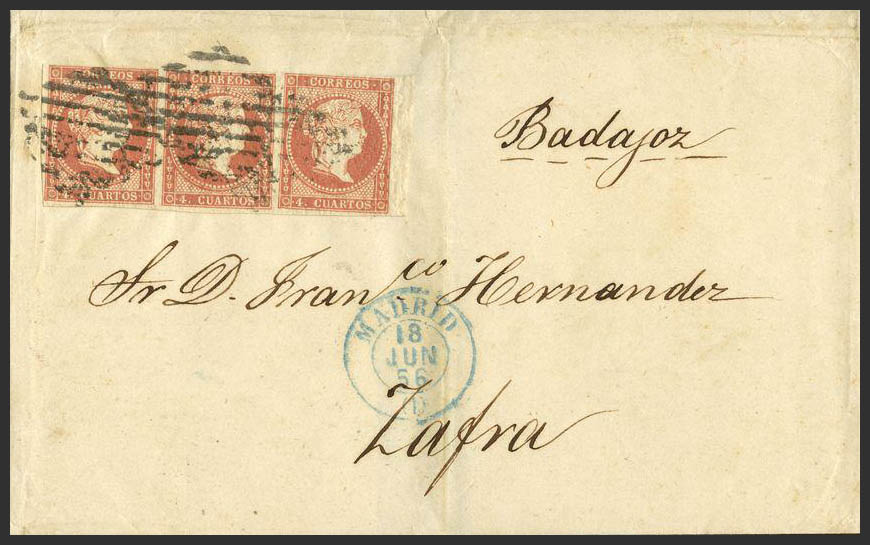 CORREOS CORREOS CORREOS
4. CUARTOS 4. CUARTOS 4. CUARTOS
Badajoz
Sr D. Franco Hernandez
MADRID
18
JUN
56
Zafra